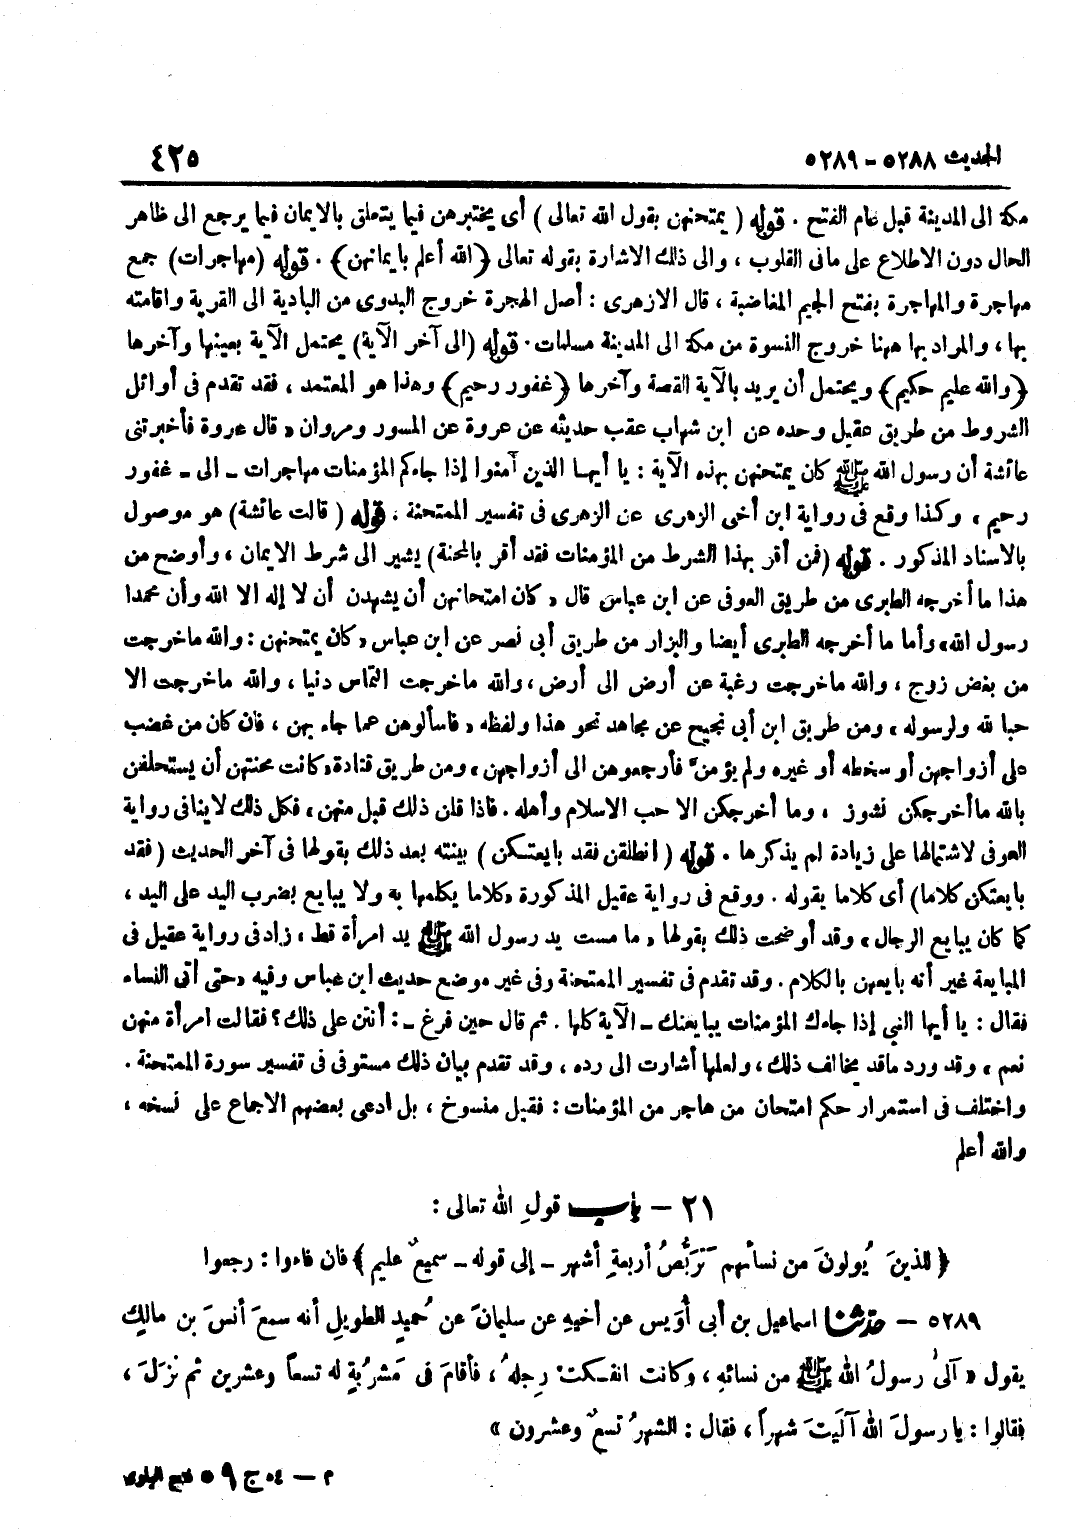 الحديث ٥٢٨٨ - ٥٢٨٩ ٤٢٥
مكة الى المدينة قبل عام الفتح . قوله ( يمتحنهن بقول الله تعالى ) أى يختبرهن فيما يتعلق بالايمان فيما يرجع الى ظاهر
الحال دون الاطلاع على ما فى القلوب ، والى ذلك الاشارة بقوله تعالى ﴿الله أعلم بايمانهن﴾ . قوله (مهاجرات) جمع
مهاجرة والمهاجرة بفتح الجيم المغاضبة ، قال الازهرى : أصل الهجرة خروج البدوى من البادية الى القرية واقامته
بها ، والمراد بها ههنا خروج النسوة من مكة الى المدينة مسلمات . قوله (الى آخر الآية) يحتمل الآية بعينها وآخرها
﴿والله عليم حكيم﴾ ويحتمل أن يريد بالآية القصة وآخرها ﴿غفور رحيم﴾ وهذا هو المعتمد ، فقد تقدم فى أوائل
الشروط من طريق عقيل وحده عن ابن شهاب عقب حديثه عن عروة عن المسور ومروان « قال عروة فأخبرتنى
عائشة أن رسول الله ﷺ كان يمتحنهن بهذه الآية : يا أيها الذين آمنوا إذا جاءكم المؤمنات مهاجرات ـ الى ـ غفور
رحيم » وكذا وقع فى رواية ابن أخى الزهرى عن الزهرى فى تفسير الممتحنة . قوله ( قالت عائشة) هو موصول
بالاسناد المذكور . قوله (فمن أقر بهذا الشرط من المؤمنات فقد أقر بالمحنة) يشير الى شرط الايمان ، وأوضح من
هذا ما أخرجه الطبرى من طريق العوفى عن ابن عباس قال « كان امتحانهن أن يشهدن أن لا إله الا الله وأن محمدا
رسول الله» وأما ما أخرجه الطبرى أيضا والبزار من طريق أبى نصر عن ابن عباس «كان يمتحنهن : والله ماخرجت
من بغض زوج ، والله ماخرجت رغبة عن أرض الى أرض ، والله ماخرجت التماس دنيا ، والله ماخرجت الا
حبا لله ولرسوله » ومن طريق ابن أبى نجيح عن مجاهد نحو هذا ولفظه « فاسألوهن عما جاء بهن ، فان كان من غضب
على أزواجهن أو سخطه أو غيره ولم يؤمن فأرجعوهن الى أزواجهن» ومن طريق قتادة«كانت محنتهن أن يستحلفن
بالله ماأخرجكن نشوز ، وما أخرجكن الا حب الاسلام وأهله . فاذا قلن ذلك قبل منهن» فكل ذلك لاينافى رواية
العوفى لاشتمالها على زيادة لم يذكرها . قوله ( انطلقن فقد بايعتكن ) بينته بعد ذلك بقولها فى آخر الحديث ( فقد
بايعتكن كلاما) أى كلاما يقوله . ووقع فى رواية عقيل المذكورة «كلاما يكلمها به ولا يبايع بضرب اليد على اليد ،
كما كان يبايع الرجال » وقد أوضحت ذلك بقولها « ما مست يد رسول الله ﷺ يد امرأة قط » زاد فى رواية عقيل فى
المبايعة غير أنه بايعهن بالكلام . وقد تقدم فى تفسير الممتحنة وفى غير موضع حديث ابن عباس وفيه «حتى أتى النساء
فقال : يا أيها النبى إذا جاءك المؤمنات يبايعنك ـ الآية كلها . ثم قال حين فرغ ـ : أنتن على ذلك؟ فقالت امرأة منهن
نعم » وقد ورد ماقد يخالف ذلك ، ولعلها أشارت الى رده ، وقد تقدم بيان ذلك مستوفى فى تفسير سورة الممتحنة .
واختلف فى استمرار حكم امتحان من هاجر من المؤمنات : فقيل منسوخ ، بل ادعى بعضهم الاجماع على نسخه ،
والله أعلم
٢١ – باب قولِ الله تعالى :
﴿ للذينَ يُولونَ من نسائهم تَرَبُّصُ أربعةِ أشهر ـ إلى قوله ـ سميعٌ عليم ﴾ فان فاءوا : رجعوا
٥٢٨٩ – حدثنا اسماعيل بن أبى أوَيس عن أخيهِ عن سليمانَ عن حُميدٍ الطويلِ أنه سمعَ أنسَ بن مالكٍ
يقول « آلىٰ رسولُ الله ﷺ من نسائهِ ، وكانت انفكتْ رِجلهُ ، فأقامَ فى مَشرُبةٍ له تسعاً وعشرين ثم نزَلَ ،
فقالوا : يا رسولَ الله آلَيتَ شهراً ، فقال : الشهرُ تسعٌ وعشرون »
م – ٥٤ ج ٩ ٥ فتح البارى